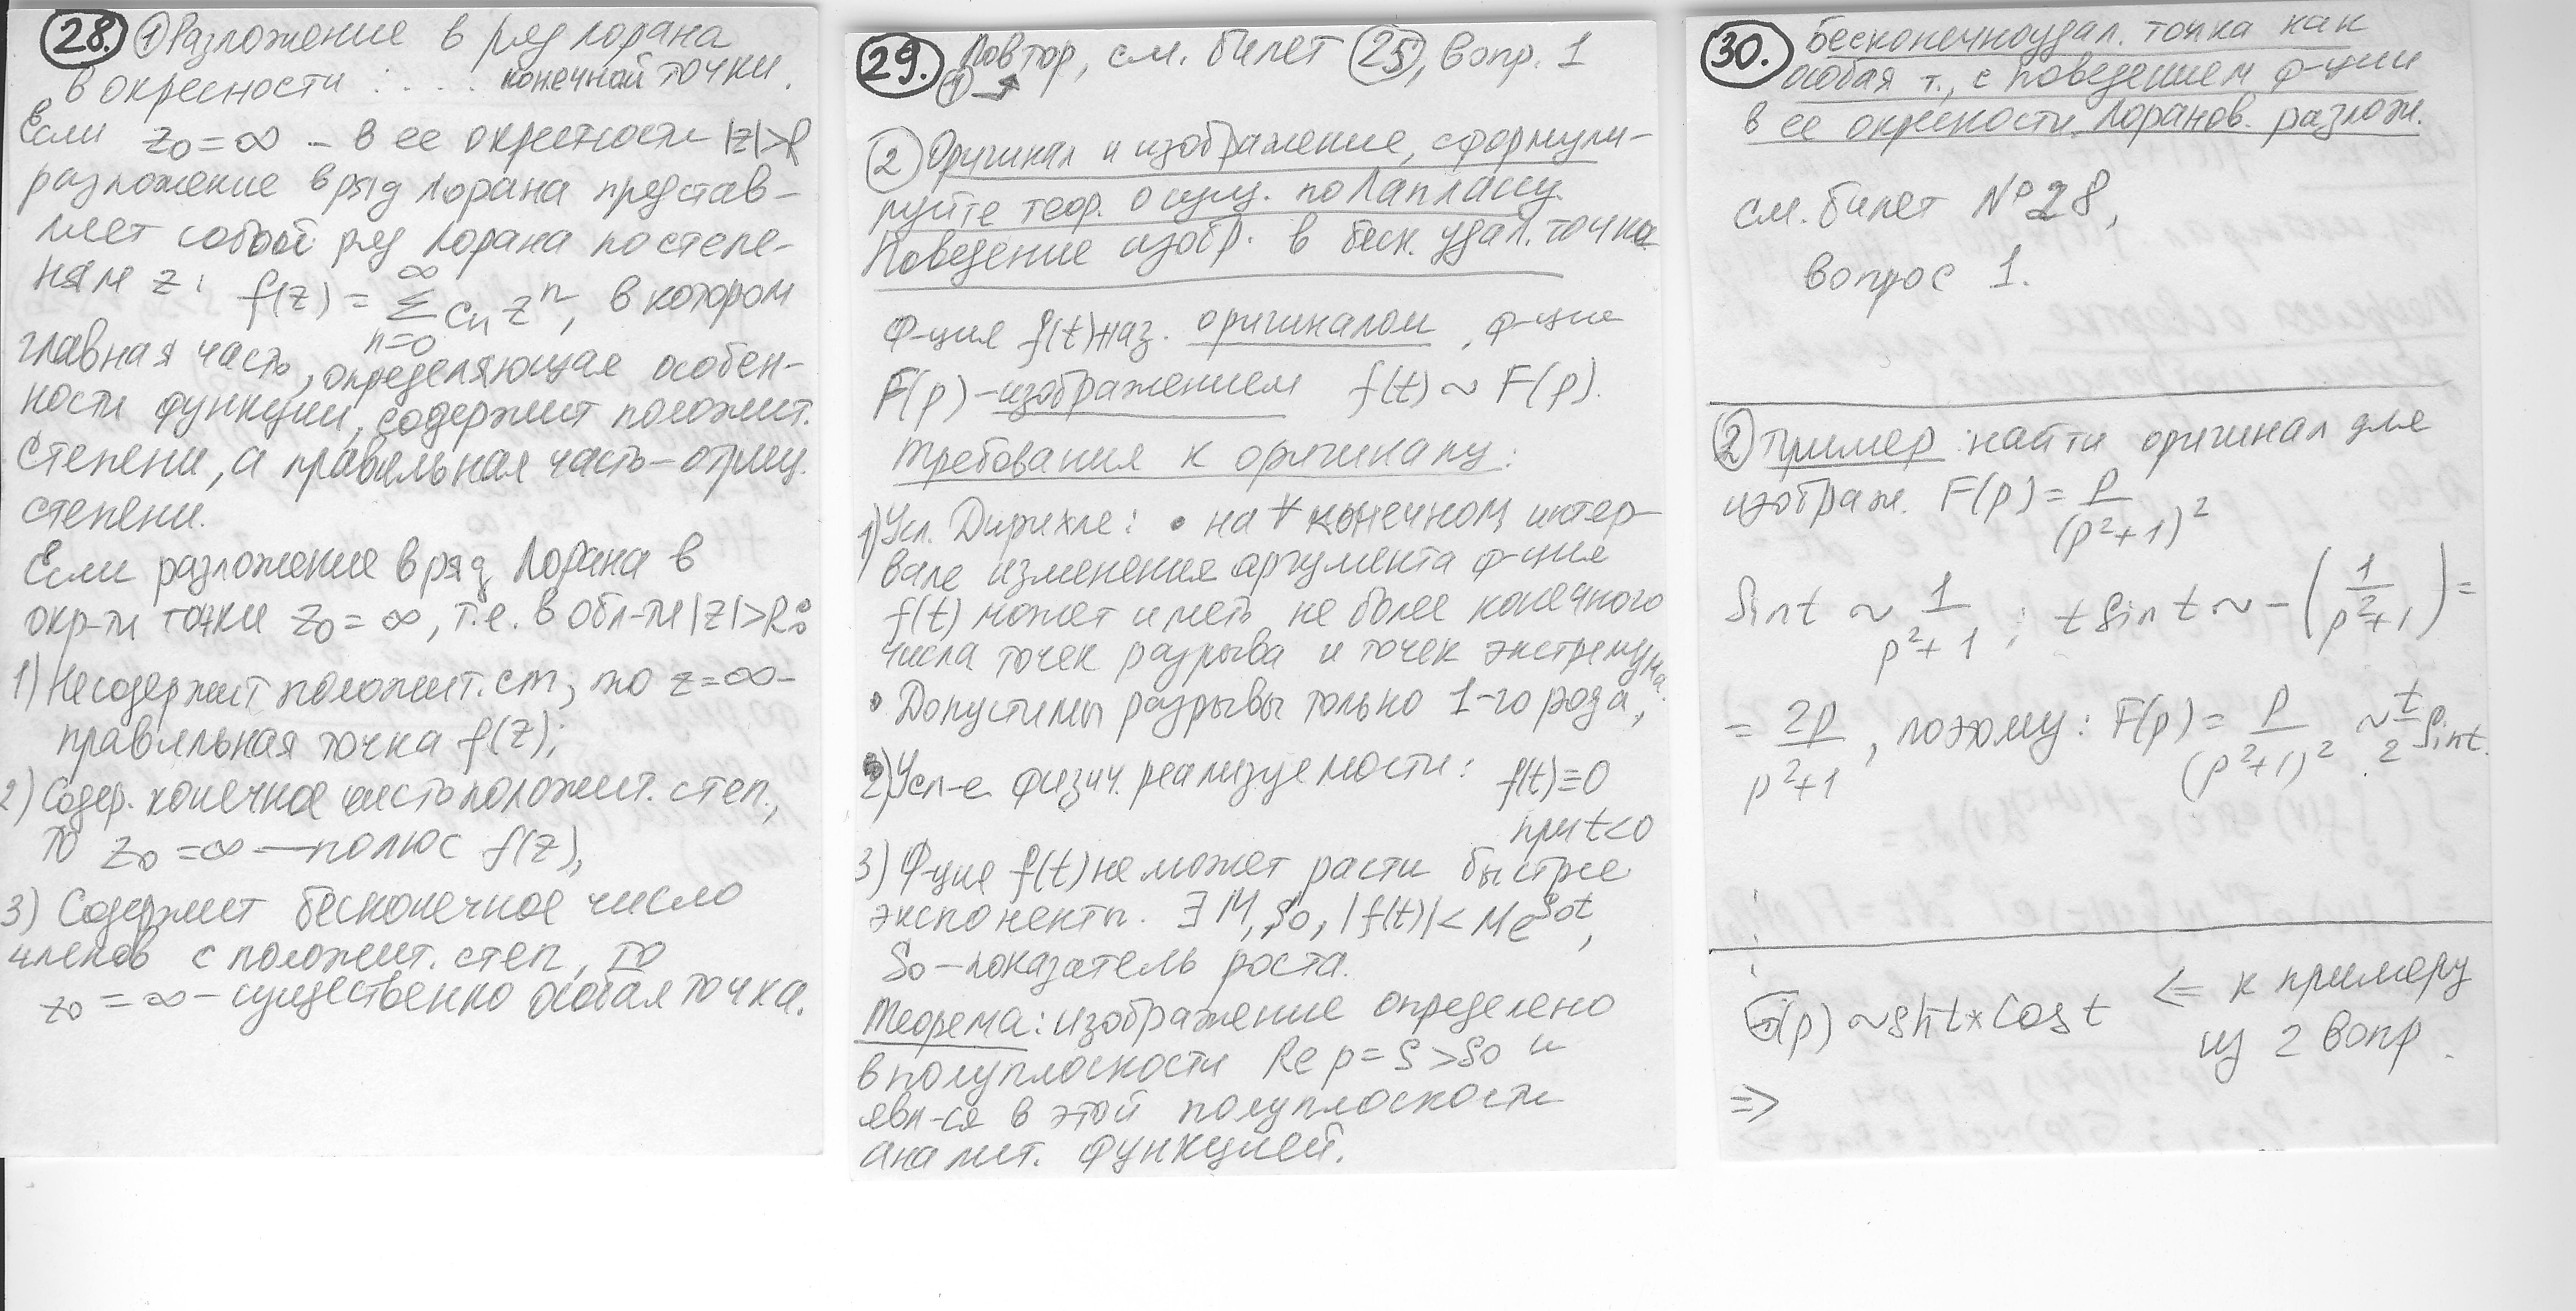 28. ① Разложение в ряд Лорана
в окресности : . . . . конечной точки.
Если z₀ = ∞ – в ее окрестности |z|>R
разложение в ряд Лорана представ-
ляет собой ряд Лорана по степе-
ням z: f(z) = ∞ Σ n=0 cₙ zⁿ, в котором
главная часть, определяющая особен-
ности функции, содержит положит.
степени, а правильная часть – отриц.
степени.
Если разложение в ряд Лорана в
окр-ти точки z₀ = ∞, т.е. в обл-ти |z|>R:
1) Не содержит положит. ст, то z = ∞ –
правильная точка f(z);
2) Содер. конечное число положит. степ.,
то z₀ = ∞ — полюс f(z),
3) Содержит бесконечное число
членов с положит. степ, то
z₀ = ∞ – существенно особая точка.
29. Повтор, см. билет 25, вопр. 1
①
② Оригинал и изображение, сформули-
руйте теор. о сущ. по Лапласу.
Поведение изобр. в беск. удал. точке
Ф-ция f(t) наз. оригиналом, ф-ция
F(p) – изображением f(t) ~ F(p).
Требования к оригиналу:
1) Усл. Дирихле: • на ∀ конечном интер-
вале изменения аргумента ф-ция
f(t) может иметь не более конечного
числа точек разрыва и точек экстремума.
• Допустимы разрывы только 1-го рода,
2) Усл-е физич. реализуемости: f(t)=0
при t<0
3) Ф-ция f(t) не может расти быстрее
экспоненты. ∃ M, s₀, |f(t)| < M e^{s₀t},
s₀ – показатель роста.
Теорема: изображение определено
в полуплоскости Re p = s > s₀ и
явл-ся в этой полуплоскости
аналит. функцией.
30. Бесконечноудал. точка как
особая т., с поведением ф-ции
в ее окресности. Лоранов. разлож.
см. билет №28,
вопрос 1.
② Пример: найти оригинал для
изображ. F(p) = p/(p²+1)²
sin t ~ 1/(p²+1); t sin t ~ –(1/(p²+1)) =
= 2p/(p²+1), поэтому: F(p) = p/(p²+1)² ~ t/2 sin t.
(p) ~ sht * cos t ⇐ к примеру
из 2 вопр.
⇒